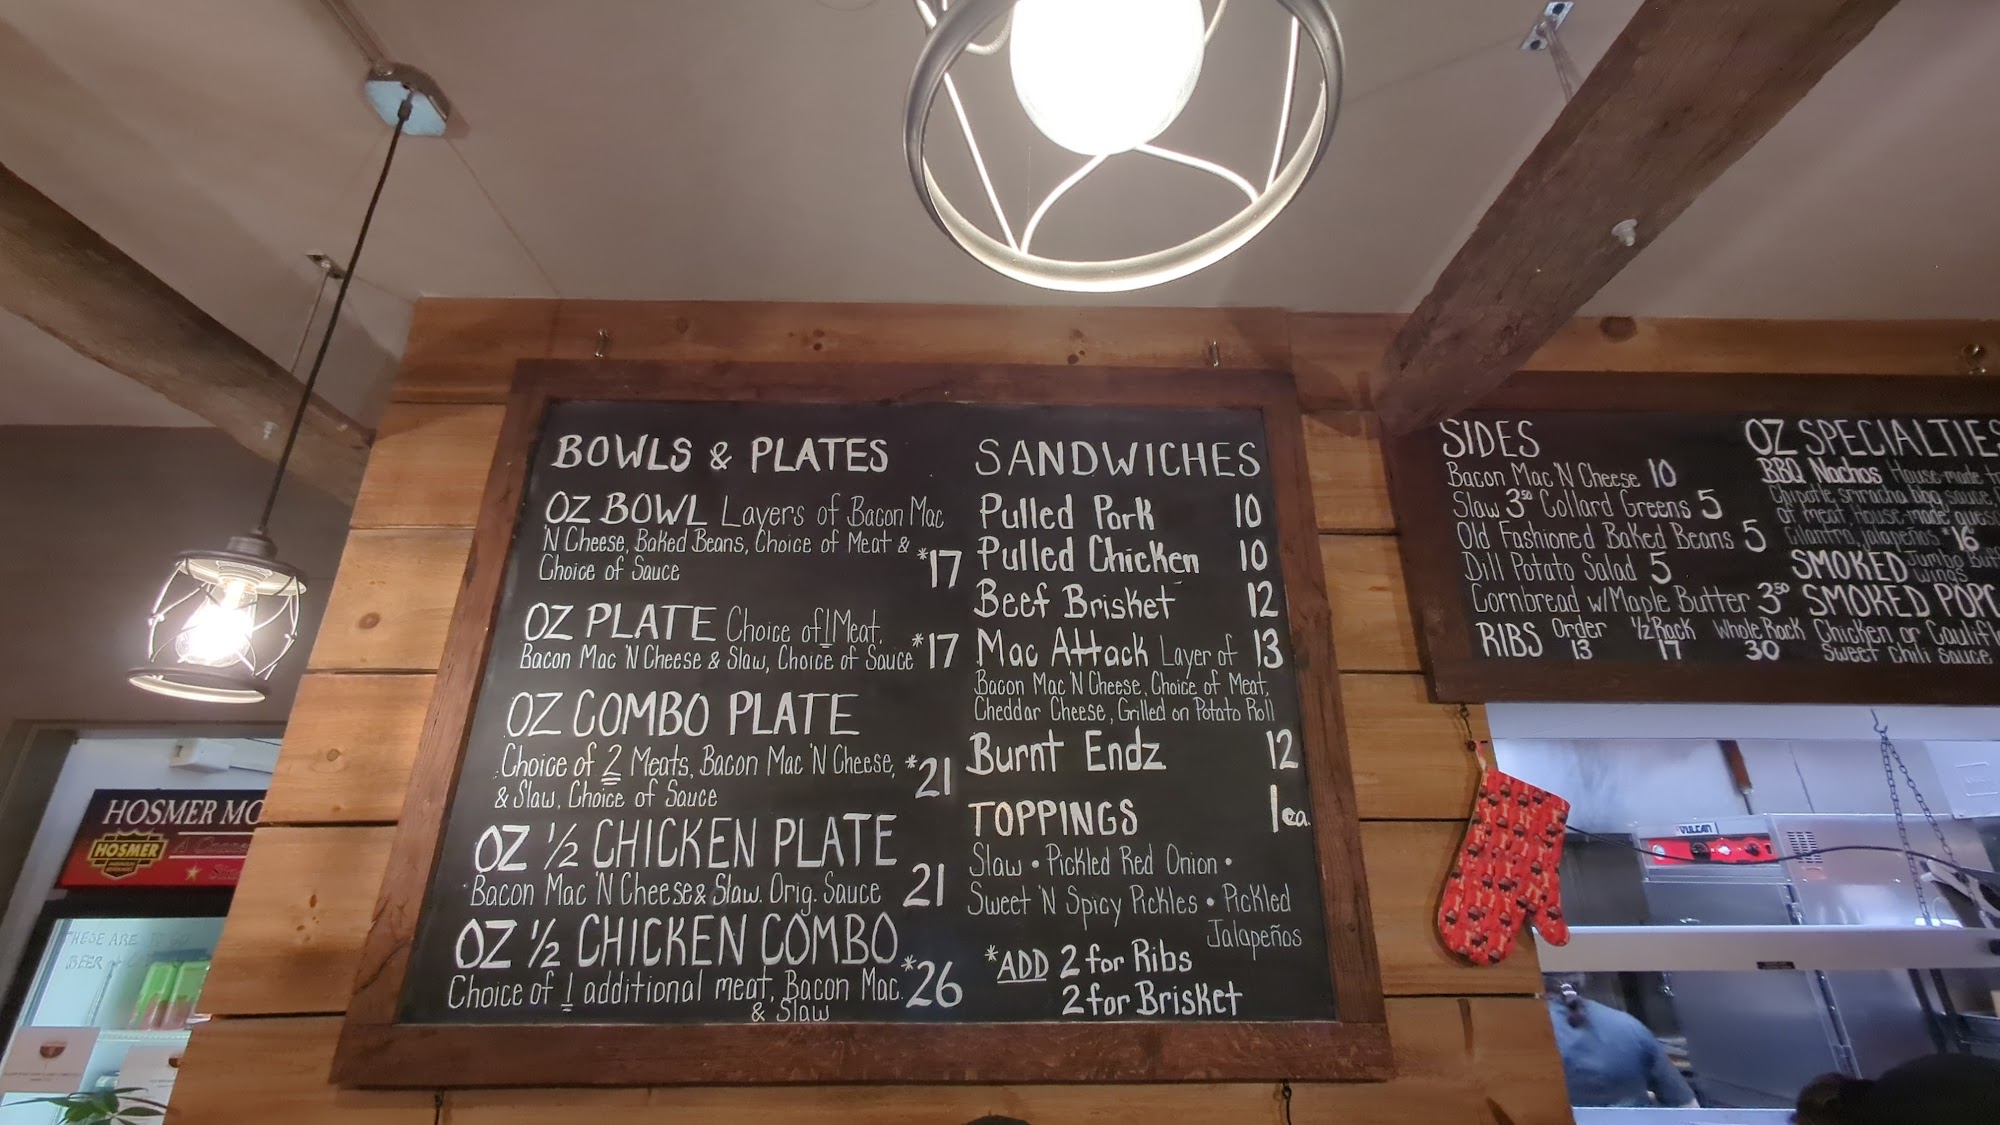 BOWLS & PLATES
OZ BOWL Layers of Bacon Mac
'N Cheese, Baked Beans, Choice of Meat &
Choice of Sauce *17
OZ PLATE Choice of 1 Meat,
Bacon Mac 'N Cheese & Slaw, Choice of Sauce *17
OZ COMBO PLATE
Choice of 2 Meats, Bacon Mac 'N Cheese, *21
& Slaw, Choice of Sauce
OZ 1/2 CHICKEN PLATE
Bacon Mac 'N Cheese & Slaw. Orig. Sauce 21
OZ 1/2 CHICKEN COMBO
Choice of 1 additional meat, Bacon Mac. *26
& Slaw
SANDWICHES
Pulled Pork 10
Pulled Chicken 10
Beef Brisket 12
Mac Attack Layer of 13
Bacon Mac 'N Cheese, Choice of Meat,
Cheddar Cheese, Grilled on Potato Roll
Burnt Endz 12
TOPPINGS 1 ea.
Slaw • Pickled Red Onion •
Sweet 'N Spicy Pickles • Pickled
Jalapeños
*ADD 2 for Ribs
2 for Brisket
SIDES
Bacon Mac 'N Cheese 10
Slaw 3⁵⁰ Collard Greens 5
Old Fashioned Baked Beans 5
Dill Potato Salad 5
Cornbread w/Maple Butter 3⁵⁰
RIBS Order 13 1/2 Rack 17 Whole Rack 30
OZ SPECIALTIES
BBQ Nachos House-made
Chipotle sriracha bbq sauce,
of meat, house-made
Cilantro, jalapeños *16
SMOKED Jumbo
Wings
SMOKED
Chicken or
Sweet chili sauce
HOSMER
HOSMER
THESE ARE TO GO
BEER
VULCAN